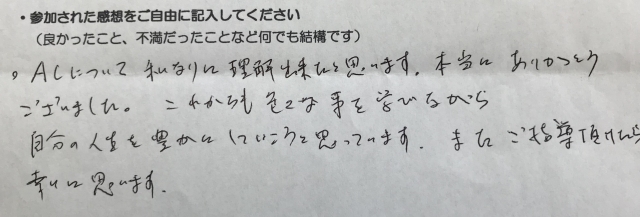 ・参加された感想をご自由に記入してください
（良かったこと、不満だったことなど何でも結構です）
。ACについて 私なりに 理解出来たと思います。本当に ありがとう
ございました。 これからも 色々な事を学びながら
自分の人生を豊かにしていこうと思っています。また ご指導頂けたら
幸いに思います。